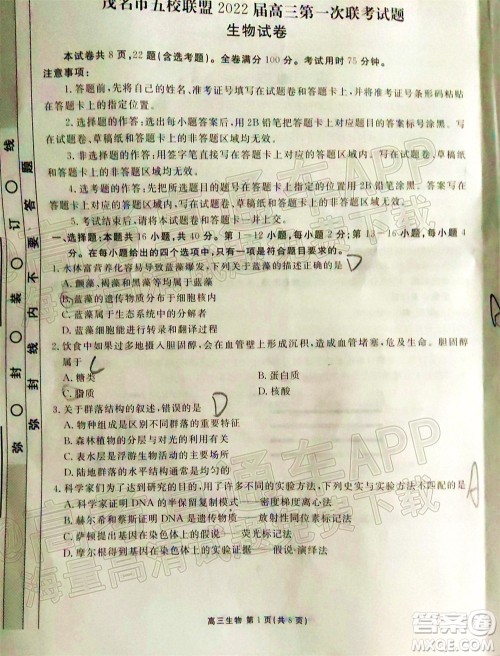 茂名市五校联盟2022届高三第一次联考试题
生物试卷
本试卷共8页,22题(含选考题)。全卷满分100分。考试用时75分钟。
注意事项:
1.答题前,先将自己的姓名、准考证号填写在试题卷和答题卡上,并将准考证号条形码粘贴
在答题卡上的指定位置。
2.选择题的作答:选出每小题答案后,用2B铅笔把答题卡上对应题目的答案标号涂黑。写
在试题卷、草稿纸和答题卡上的非答题区域均无效。
3.非选择题的作答:用签字笔直接写在答题卡上对应的答题区域内。写在试题卷、草稿纸和
答题卡上的非答题区域均无效。
4.选考题的作答:先把所选题目的题号在答题卡上指定的位置用2B铅笔涂黑。答案写在答
题卡上对应的答题区域内,写在试题卷、草稿纸和答题卡上的非答题区域均无效。
5.考试结束后,请将本试题卷和答题卡一并上交。
一、选择题:本题共16小题,共40分。第1~12小题,每小题2分;第13~16小题,每小题4
分。在每小题给出的四个选项中,只有一项是符合题目要求的。
1.水体富营养化容易导致蓝藻爆发。下列关于蓝藻的描述正确的是 D
A.蓝藻和黑藻都属于原核生物
B.蓝藻的遗传物质分布于细胞核内
C.蓝藻属于生态系统中的分解者
D.蓝藻细胞能进行转录和翻译过程
2.饮食中如果过多地摄入胆固醇,会在血管壁上形成沉积,造成血管堵塞,危及生命。胆固醇
属于 C
A.糖类
B.蛋白质
C.脂质
D.核酸
3.关于群落结构的叙述,错误的是 D
A.物种组成是区别不同群落的重要特征
B.森林植物的分层与对光的利用有关
C.表水层是浮游动物生活的主要场所
D.陆地群落中的生物水平分布是均匀的
4.科学家们进行实验研究时,用了许多不同的实验方法,下列实验方法与实验不匹配的是 A
A.科学家证明DNA的半保留复制模式——密度梯度离心法
B.赫尔希和蔡斯证明DNA是遗传物质——放射性同位素标记法
C.萨顿推测基因在染色体上的——荧光标记法
D.摩尔根得到基因在染色体上的——假说-演绎法
高三生物 第1页(共8页)
弥 封 装 订 线
弥 封 线 内 不 要 答 题
海量高清试题免费下载
作业帮